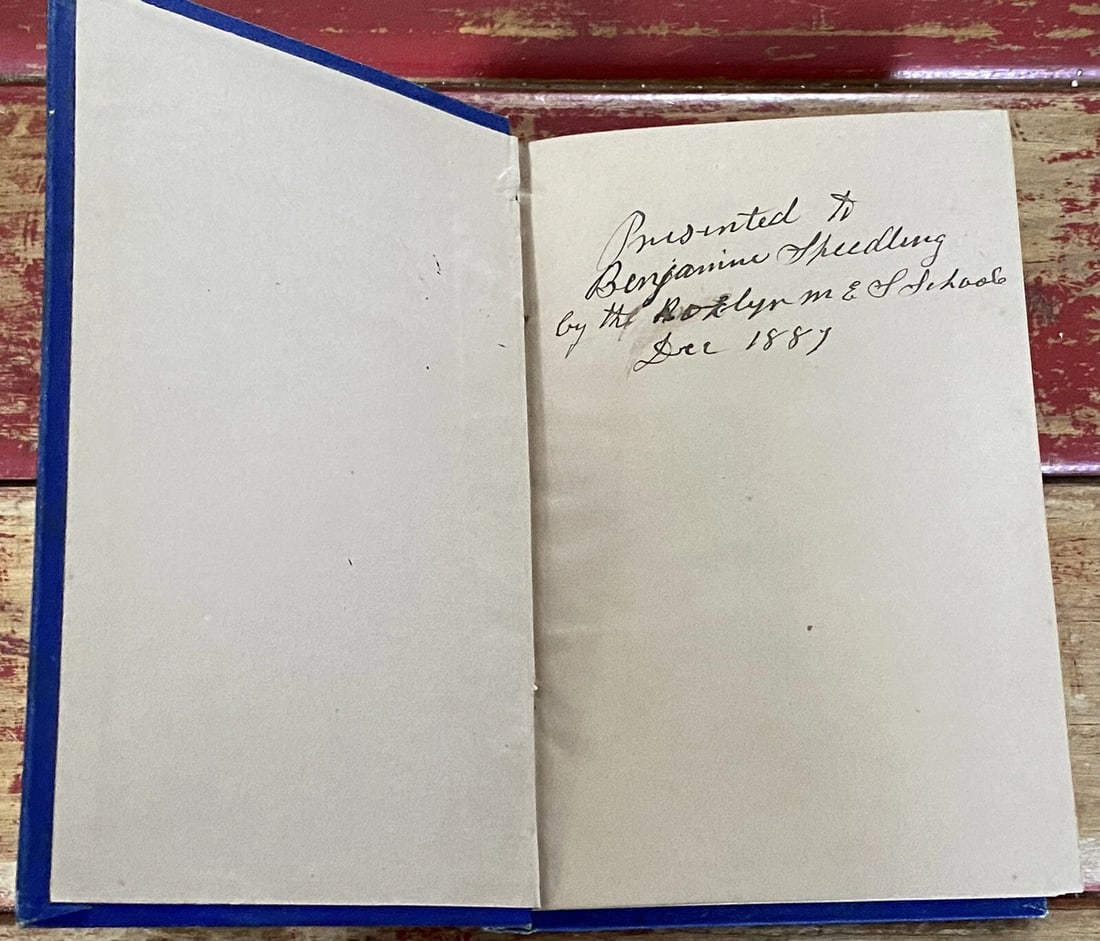 Presented to
Benjamine Speedling
by the Roslyn M E S School
Dec 1887